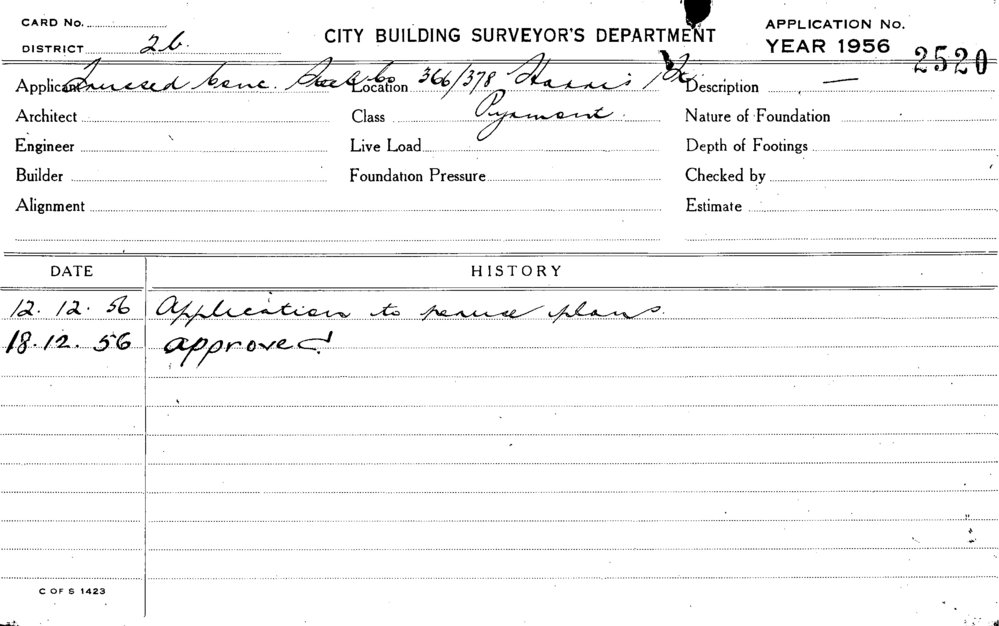 CARD No.
DISTRICT 2b.
CITY BUILDING SURVEYOR'S DEPARTMENT
APPLICATION No.
YEAR 1956 2520
Applicant Trussed Conc. Steel Co Location 366/378 Harris St Description —
Architect Class Pyrmont. Nature of Foundation
Engineer Live Load Depth of Footings
Builder Foundation Pressure Checked by
Alignment Estimate
DATE HISTORY
12.12.56 Application to peruse plans.
18.12.56 approved
C OF S 1423